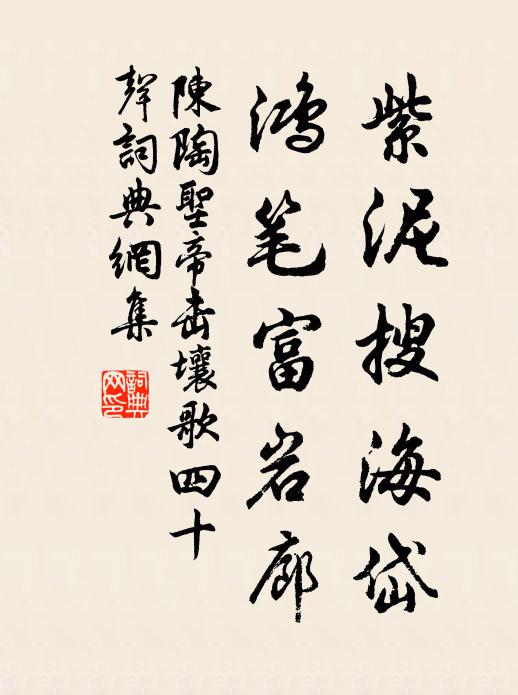 紫泥搜海岱
鸿笔富岩廊
陳陶聖帝击壤歌四十
聲詞典網集
詞典
网印